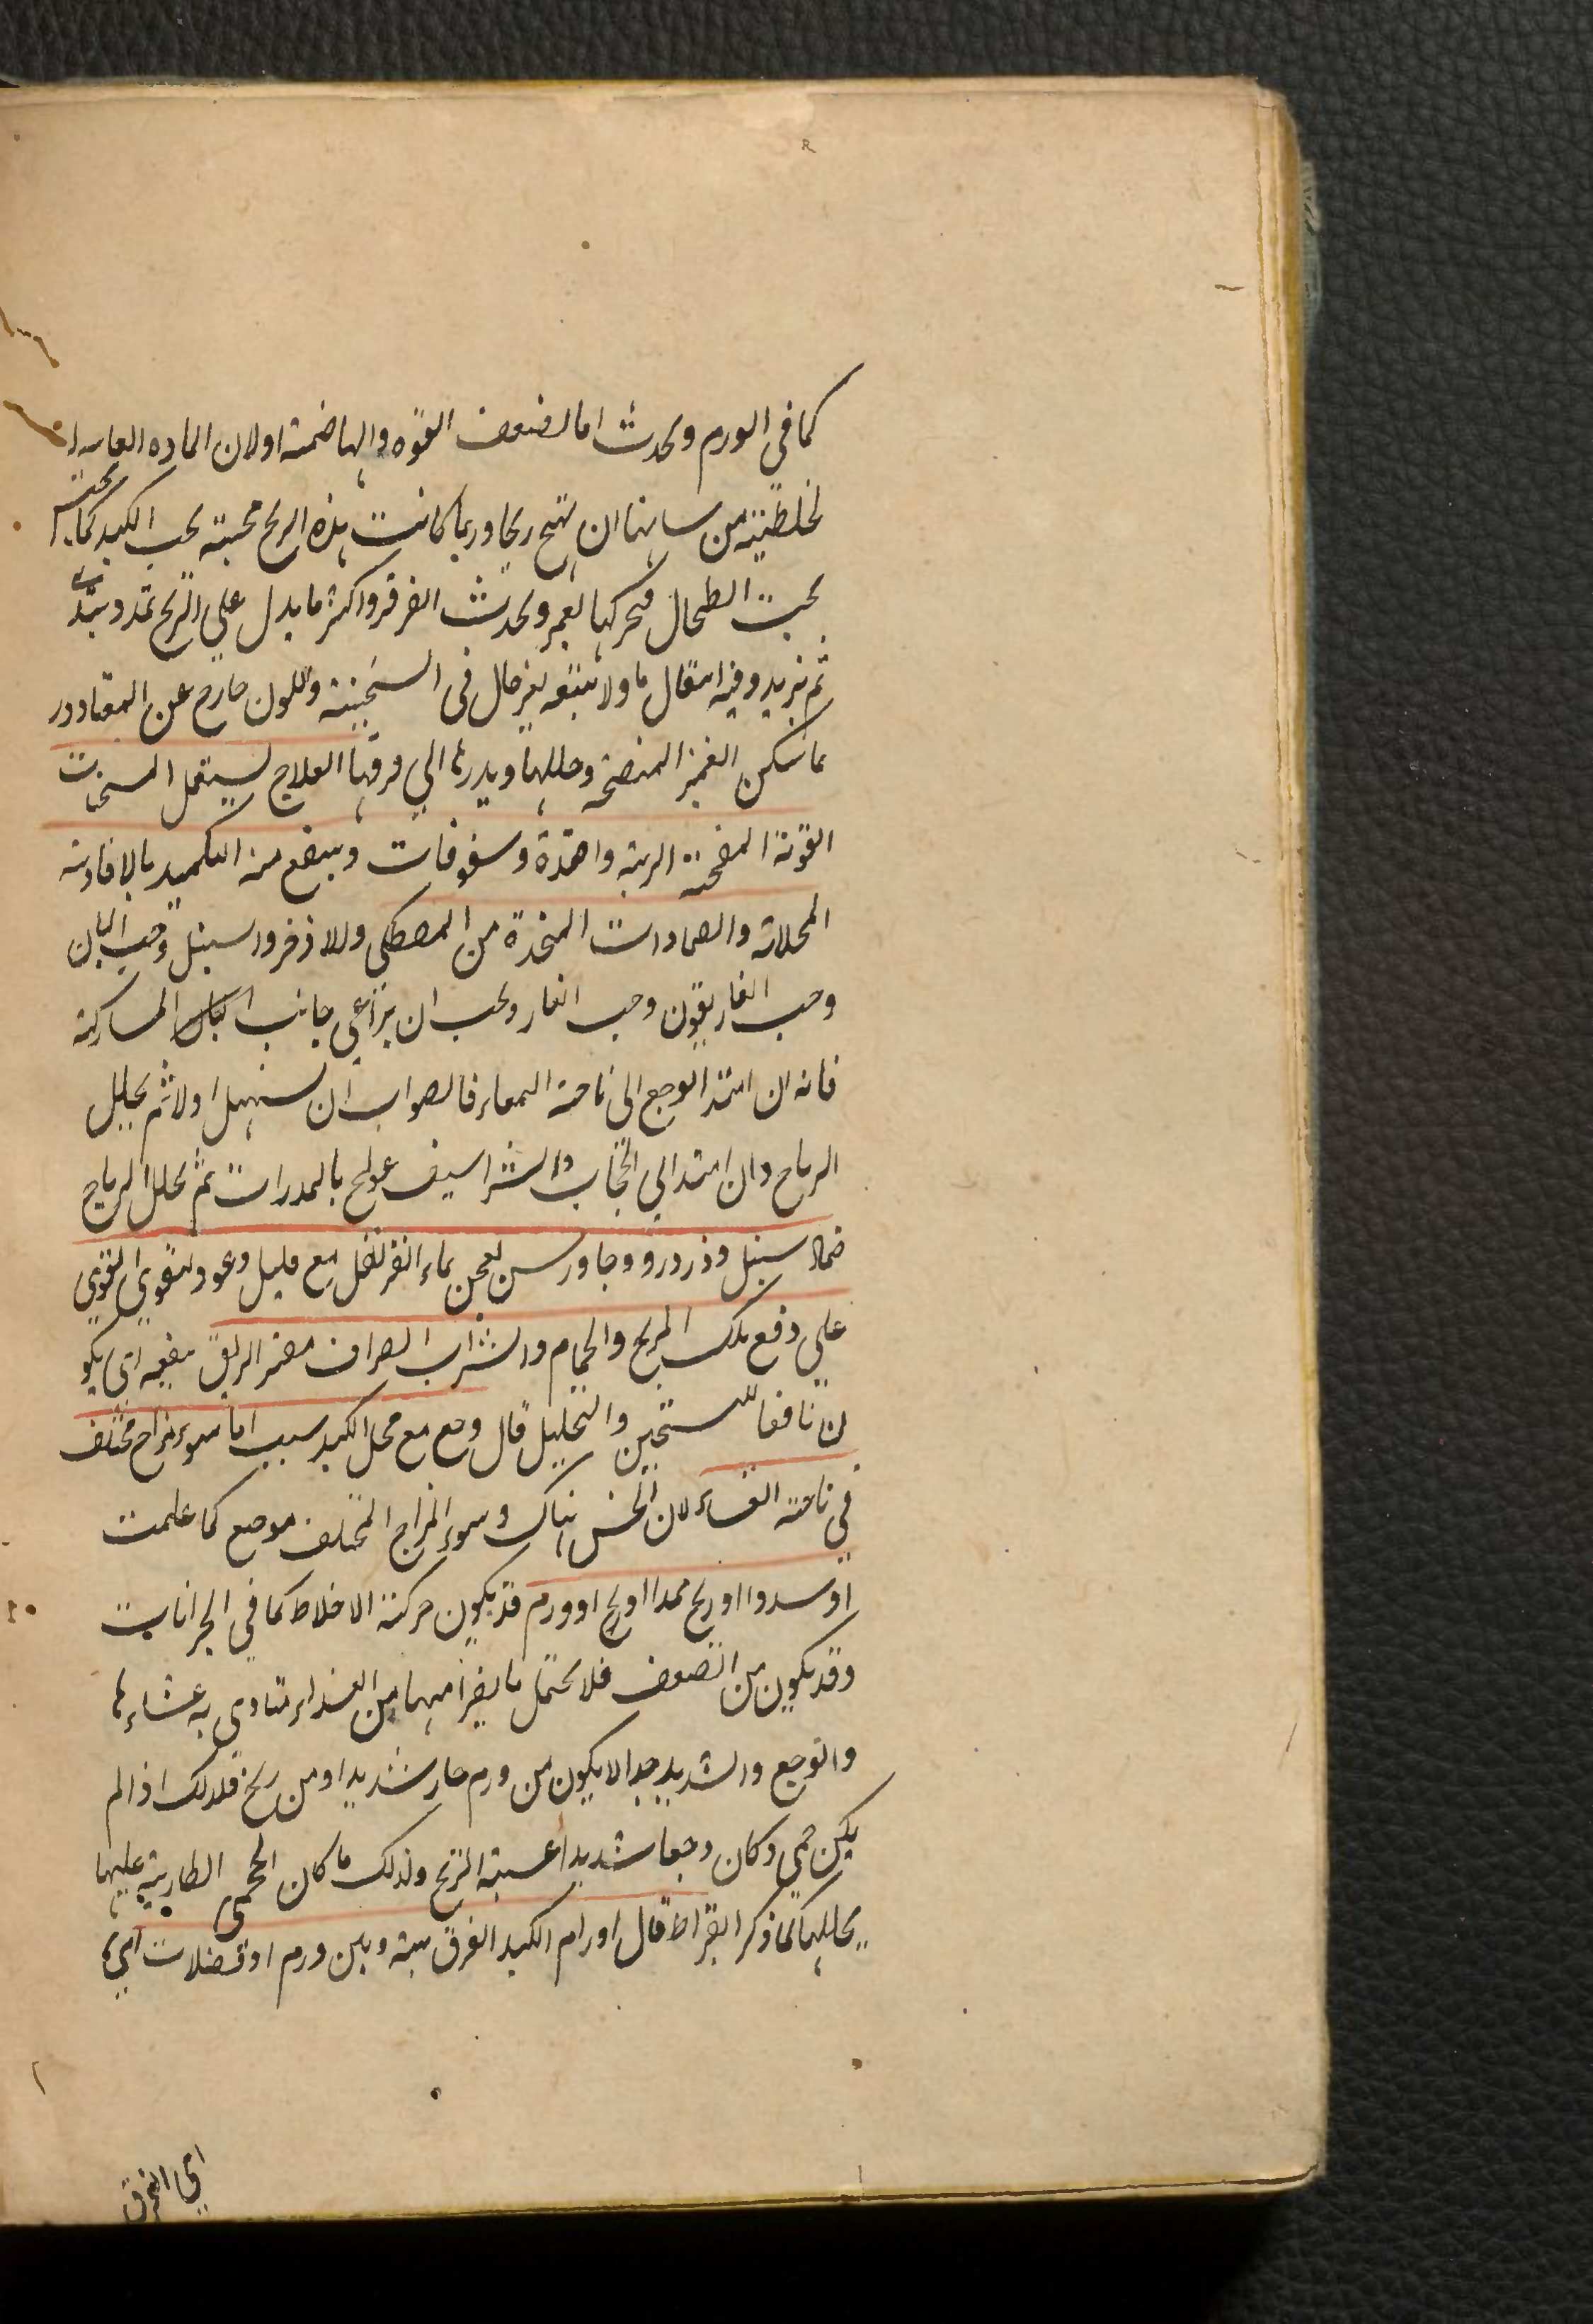 كما في الورم ويحدث اما لضعف القوه والهاضمة اولان الماده الغا
لخلطية من شانها ان تهيج ريحا وربما كانت هذه الريح محتبسة تحت الكبد كما تحتبس
تحت الطحال فيحركها الغمز ويحدث القرقر واكثر ما يدل علي الريح تمدد يبتدئ
ثم يزيد وفيه انتقال ما ولا يتبعه تغير حال في السحنة واللون خارج عن المعتاد ور
بما سكن الغمز المنضحه وحللها ويدرها الي فرقها العلاج يستعمل المسخنات
القوية المفتحة الريبة واضمدة وسفوفات وينفع منه التكميد بالافاوية
المحللاته والضمادات المتخذة من المصطكي والاذخر والسنبل وحب البان
وحب الغاريقون وحب الغار ويجب ان يراعي جانب المشاركة
فانه ان امتد الوجع الى ناحية المعاء فالصواب ان يسهل اولا ثم يحلل
الرياح وان امتد الي الحجاب والشراسيف عولج بالمدرات ثم يحلل الرياح
ضماد سنبل وذرورو وجاورس يعجن بماء القرنفل مع قليل وعود ليقوي القوي
علي دفع تلك الريح والحمام والشراب الصراف مضر الريق ينفعه اي يكو
ن نافعا للتسخين والتحليل قال وجع مع محل الكبد سببه اما سوء مزاج مختلف
في ناحية الغشاء لان الحس هناك وسوء المزاج المختلف موجع كما علمت
او سدد او ريح ممدد او ورم قد يكون حركة الاخلاط كما في البحرانات
وقد يكون من الضعف فلا يحتمل ما يضرا منها من الغذاء يتاذي به غشاءها
والوجع والشديد جدا لا يكون من ورم حار شديد او من ريح فلذلك اذا لم
يكن حمي وكان وجعا شديدا عسبة الريح ولذلك ما كان الحمى الطارية عليها
يحللها كما ذكر ابقراط قال اورام الكبد الفرق بينه وبين ورم او عضلات اي
اي الفرق